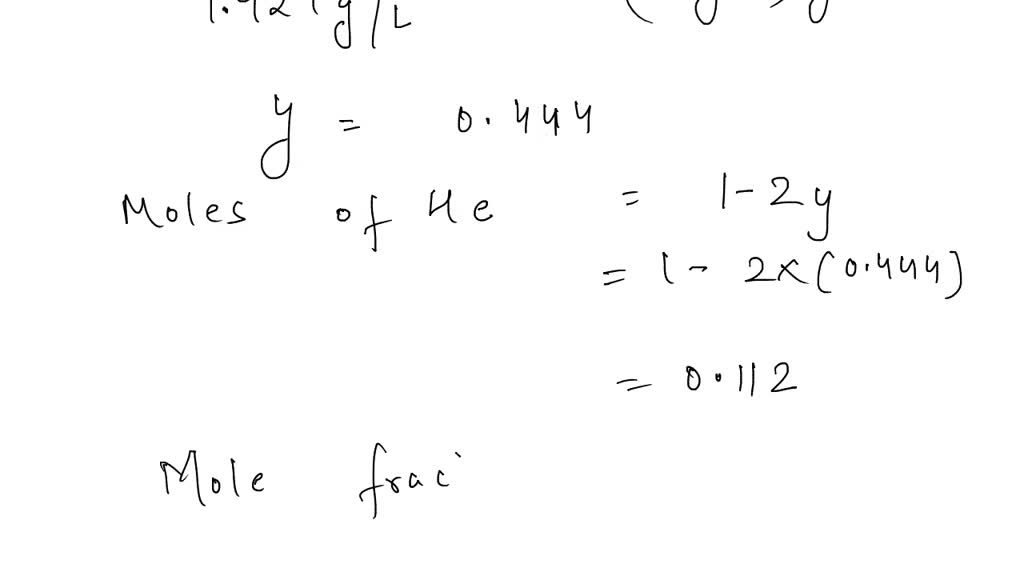 y = 0.444
Moles of He = 1-2y
= 1- 2x(0.444)
= 0.112
Mole frac